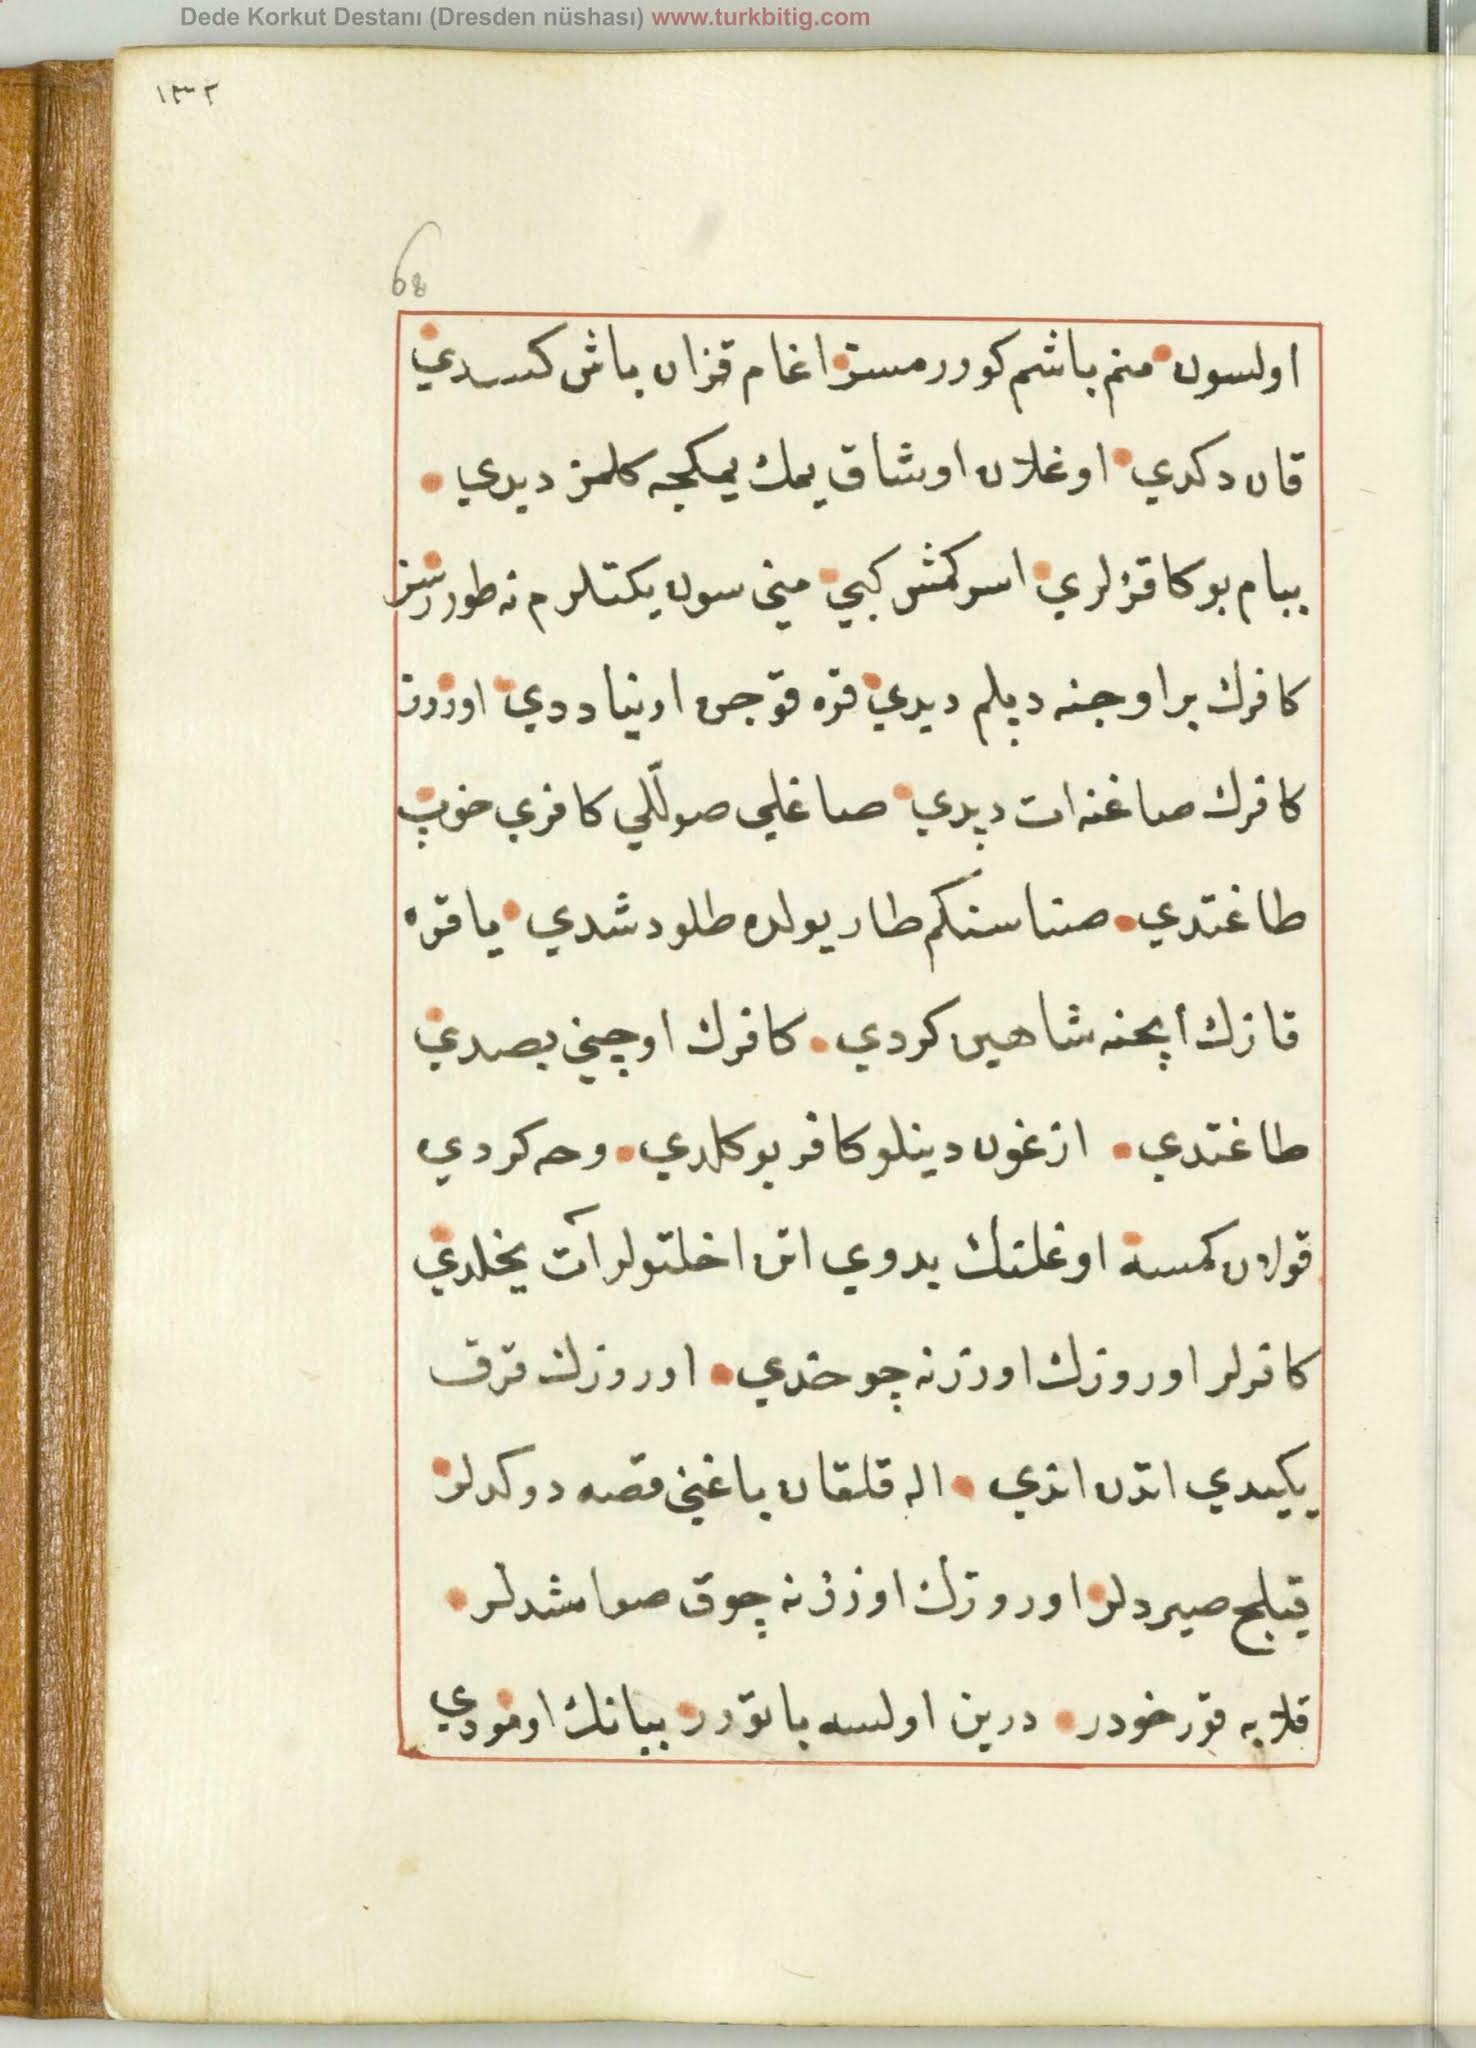 Dede Korkut Destanı (Dresden nüshası) www.turkbitig.com
١٣٢
68
اولسون منم باشم كوررمسز اغام قزان باش كسدي
قان دكدي اوغلان اوشاق يمك يمكجه كلمز ديدي
ببام بوكا قزلري اسركمش كبي مني سون يكتلرم نه طوررسز
كافرك براوجنه دپلم ديدي قره قوچن اويناددي اوروز
كافرك صاغنه ات دپدي صاغلي صوللي كافري خوب
طاغتدي صنناسنكم طار يولده طلو دشدي يا قره
قازك اپچنه شاهين كردي كافرك اوچني بصدي
طاغتدي ازغون دينلو كافر بوكلدي وحه كردي
قولون كمسه اوغلنك بدوي اتن اخلتولر آت يخلدي
كافرلر اوروزك اوززنه چوخندي اوروزك قرق
يكيدي اتدن اندي اله قلقان باغني قصه دوكدلر
قيلج صيردلر اوروزك اوززنه چوق صواشدلر
قلابه قورخودر درين اولسه باتوردر ببانك اومودي